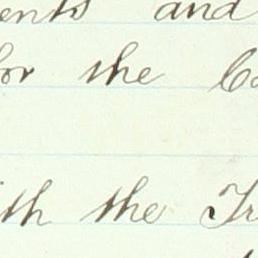 ents and
for the
ith the Tr